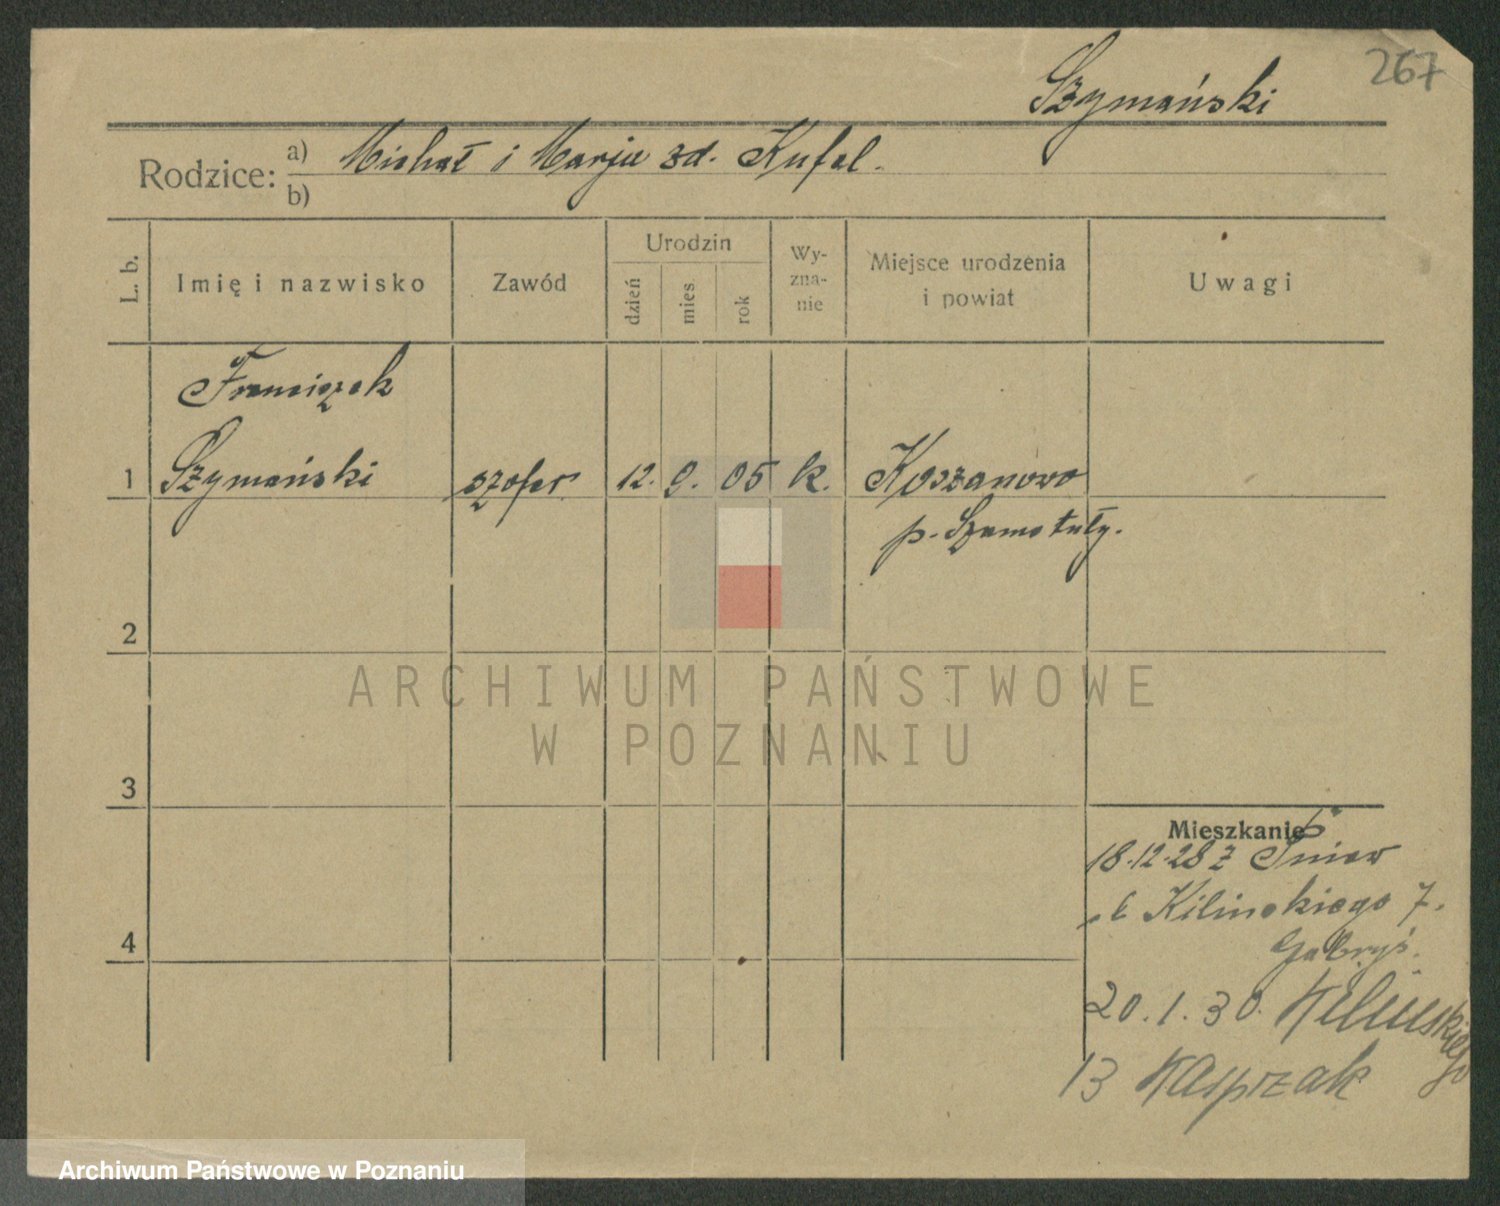 267
Szymański
Rodzice: a) Michał i Marja zd. Kufel.
b)
L. b. Imię i nazwisko Zawód Urodzin dzień mies. rok Wyznanie Miejsce urodzenia i powiat Uwagi
Franciszek
1 Szymański szofer 12. 9. 05 k. Koszanowo
p. Szamotuły.
2
ARCHIWUM PAŃSTWOWE
W POZNANIU
3
Mieszkanie
18.12.28 z
4 Kilińskiego 7.
Gabryś.
20.1.30. Kilińskiego
13 Kasprzak
Archiwum Państwowe w Poznaniu